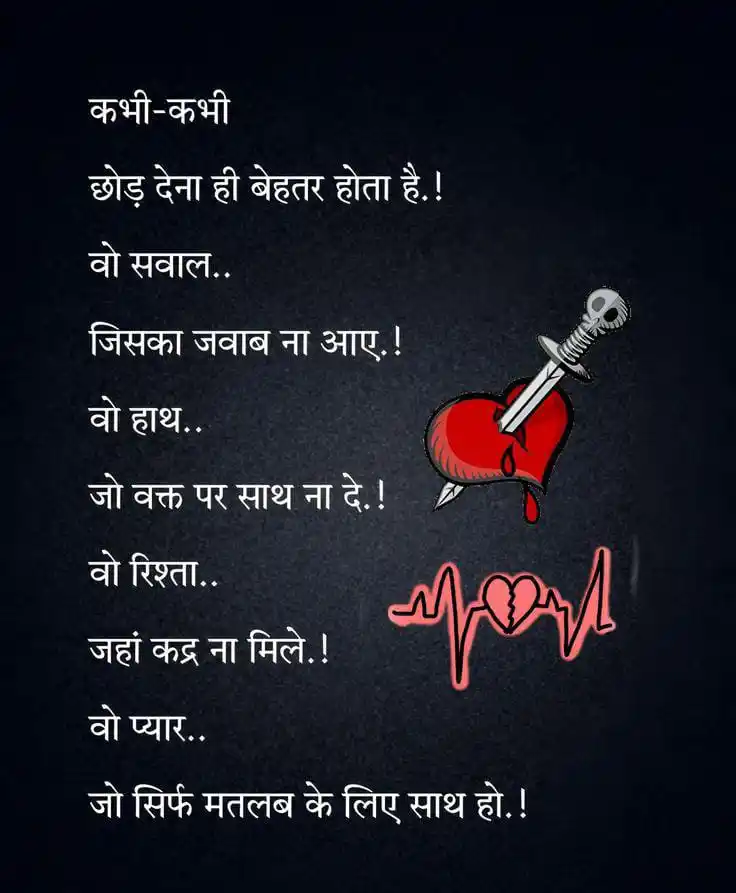 कभी-कभी
छोड़ देना ही बेहतर होता है.!
वो सवाल..
जिसका जवाब ना आए.!
वो हाथ..
जो वक्त पर साथ ना दे.!
वो रिश्ता..
जहां कद्र ना मिले.!
वो प्यार..
जो सिर्फ मतलब के लिए साथ हो.!